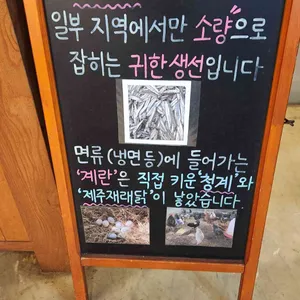 일부 지역에서만 소량"으로
잡히는 귀한생선입니다
면류(냉면등)에 들어가는
'계란'은 직접 키운'청계'와
'제주재래닭'이 낳았습니다.